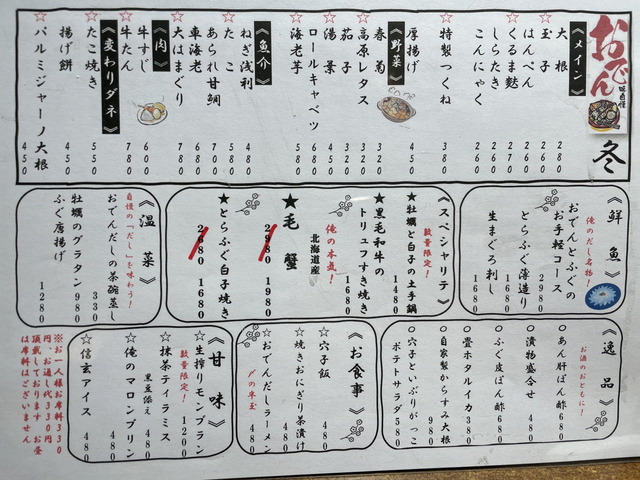 おでん
味自慢
冬
《メイン》
大根 280
玉子 260
はんぺん 260
くるま麩 270
しらたき 260
こんにゃく 260
☆特製つくね 380
厚揚げ 450
《野菜》
春菊 320
☆高原レタス 320
茄子 320
☆湯葉 450
ロールキャベツ 680
☆海老芋 580
《魚介》
ねぎ浅利 480
たこ 580
あられ甘鯛 700
車海老 680
☆大はまぐり 780
《肉》
牛すじ 600
☆牛たん 780
《変わりダネ》
☆たこ焼き 550
揚げ餅 450
☆パルミジャーノ大根 450
《鮮魚》
俺のだし名物!
おでんとふぐの
お手軽コース 2980
とらふぐ薄造り 1680
生まぐろ刺し 1680
《スペシャリテ》
数量限定!
★牡蠣と白子の土手鍋 1480
★黒毛和牛の
トリュフすき焼き 1680
俺の本気!
北海道産
★毛蟹 2980 1980
★とらふぐ白子焼き 2680 1680
《温菜》
自慢の「だし」を味わう!
おでんだしの茶碗蒸し 330
牡蠣のグラタン 980
ふぐ唐揚げ 1280
《逸品》
お酒のおともに!
○あん肝ぽん酢 680
○漬物盛合せ 480
○ふぐ皮ぽん酢 480
○畳ホタルイカ 380
○自家製からすみ大根 980
○穴子といぶりがっこ
ポテトサラダ 580
《お食事》
☆穴子飯 480
☆焼きおにぎり茶漬け 480
☆おでんだしラーメン 480
〆の本玉
《甘味》
☆生搾りモンブラン 1200
数量限定!
☆抹茶ティラミス 480
黒豆添え
☆俺のマロンプリン 480
☆信玄アイス 480
※お一人様お席料330
円、お通し代330円
頂戴しております お昼
は席料はございません